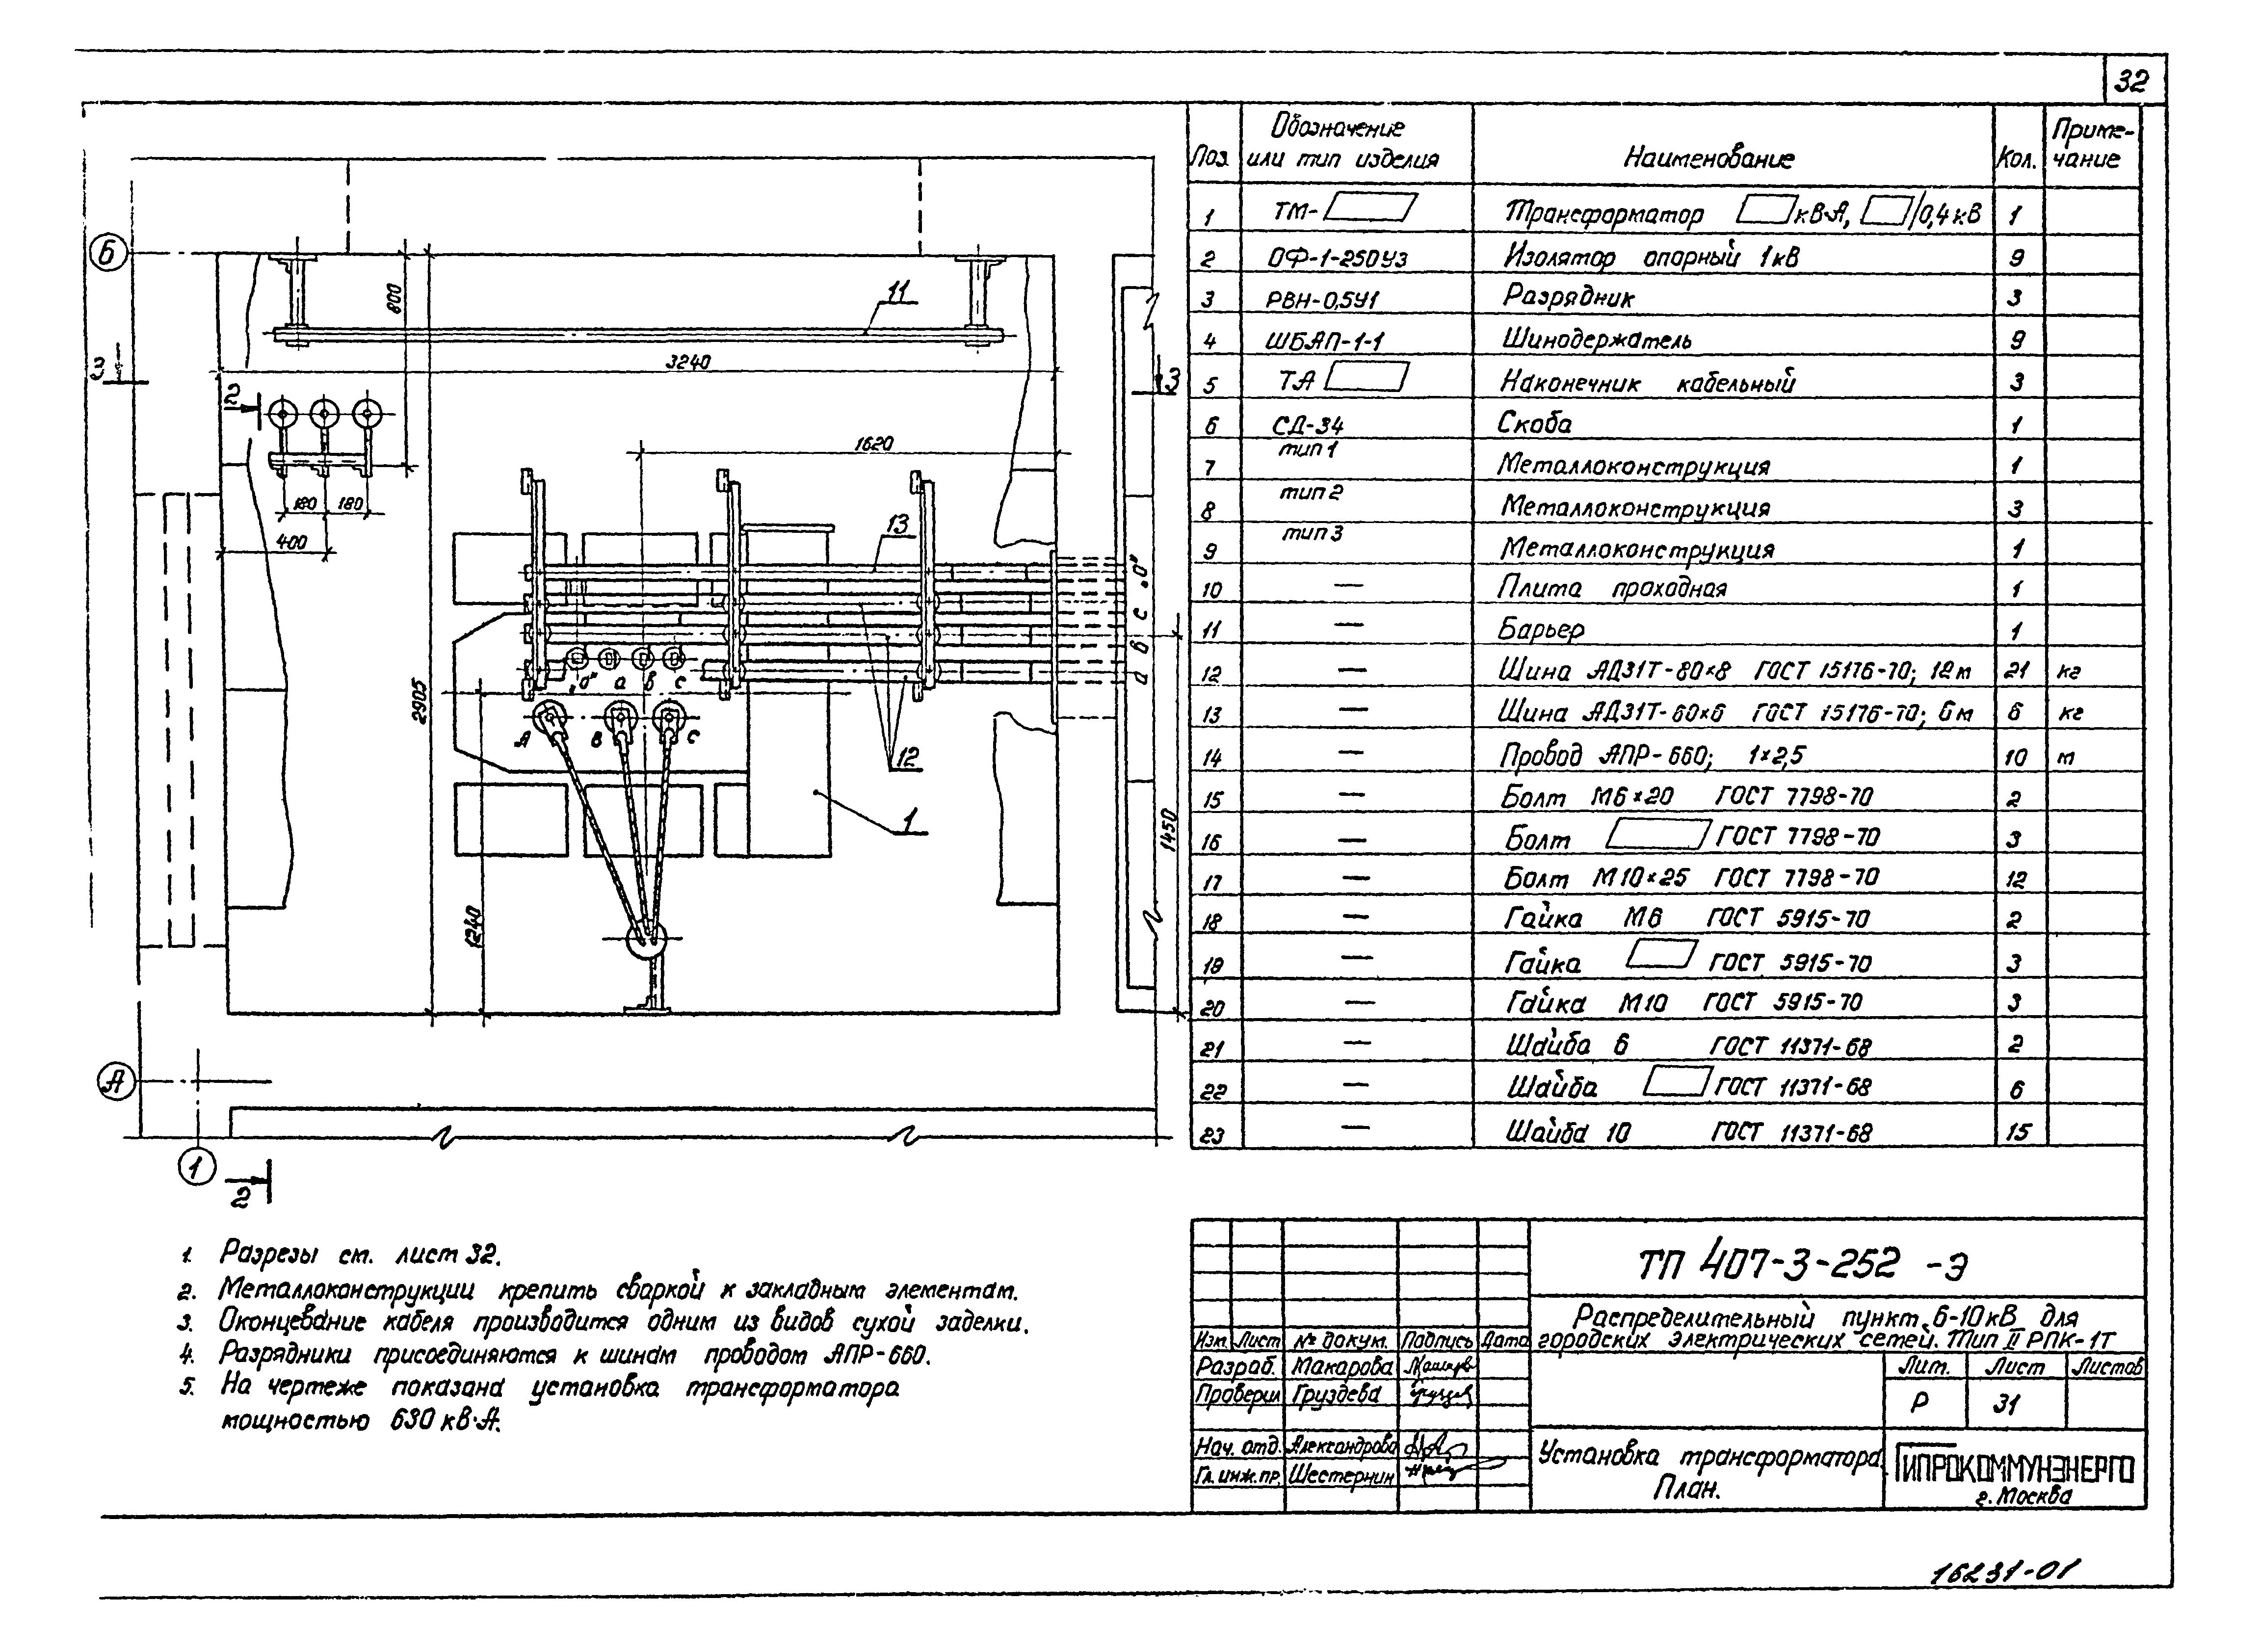 32
Б
А
1
3
3
2
2
11
800
3240
1620
180 180
400
13
2905
1240
1450
"0"
с
в
а
"0" а в с
А В С
12
1
Поз. Обозначение или тип изделия Наименование Кол. Приме-чание
1 ТМ- Трансформатор кВ·А, /0,4 кВ 1
2 ОФ-1-250У3 Изолятор опорный 1кВ 9
3 РВН-0,5У1 Разрядник 3
4 ШБАП-1-1 Шинодержатель 9
5 ТА Наконечник кабельный 3
6 СД-34 Скоба 1
7 тип 1 Металлоконструкция 1
8 тип 2 Металлоконструкция 3
9 тип 3 Металлоконструкция 1
10 — Плита проходная 1
11 — Барьер 1
12 — Шина АД31Т-80×8 ГОСТ 15176-70; 12 м 21 кг
13 — Шина АД31Т-60×6 ГОСТ 15176-70; 6 м 6 кг
14 — Провод АПР-660; 1×2,5 10 м
15 — Болт М6×20 ГОСТ 7798-70 2
16 — Болт ГОСТ 7798-70 3
17 — Болт М10×25 ГОСТ 7798-70 12
18 — Гайка М6 ГОСТ 5915-70 2
19 — Гайка ГОСТ 5915-70 3
20 — Гайка М10 ГОСТ 5915-70 3
21 — Шайба 6 ГОСТ 11371-68 2
22 — Шайба ГОСТ 11371-68 6
23 — Шайба 10 ГОСТ 11371-68 15
1. Разрезы см. лист 32.
2. Металлоконструкции крепить сваркой к закладным элементам.
3. Оконцевание кабеля производится одним из видов сухой заделки.
4. Разрядники присоединяются к шинам проводом АПР-660.
5. На чертеже показана установка трансформатора
мощностью 630 кВ·А.
ТП 407-3-252 -Э
Распределительный пункт 6-10кВ для
городских электрических сетей. Тип II РПК-1Т
Изм. Лист № докум. Подпись Дата
Разраб. Макарова
Проверил Груздева
Нач. отд. Александрова
Гл. инж. пр. Шестернин
Лит. Лист Листов
Р 31
Установка трансформатора.
План.
ГИПРОКОММУНЭНЕРГО
г. Москва
16231-01